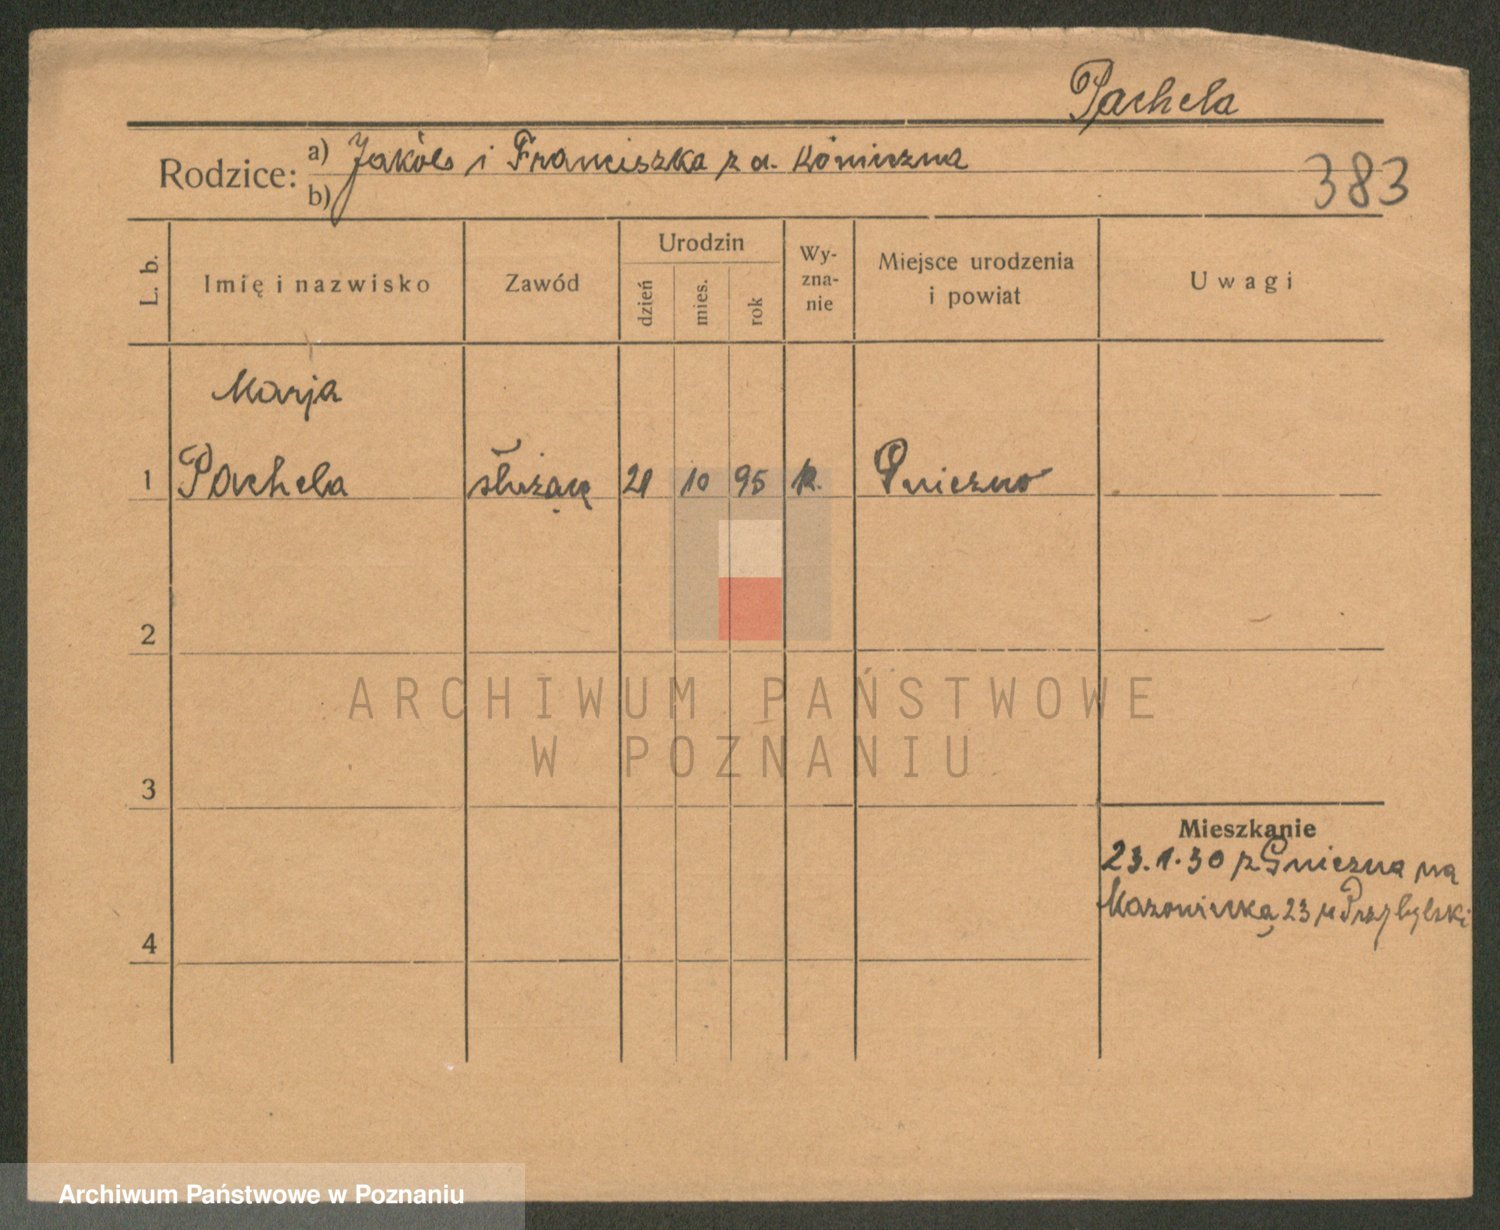 Pachela
Rodzice: a) Jakób i Franciszka z d. Konieczna
b)
383
L. b.
Imię i nazwisko
Zawód
Urodzin
dzień
mies.
rok
Wy-
zna-
nie
Miejsce urodzenia
i powiat
Uwagi
Marja
1 Pachela służącą 21 10 95 k. Gniezno
2
3
4
ARCHIWUM PAŃSTWOWE
W POZNANIU
Mieszkanie
23.1.30 z Gniezna na
23 u Przybylski
Archiwum Państwowe w Poznaniu